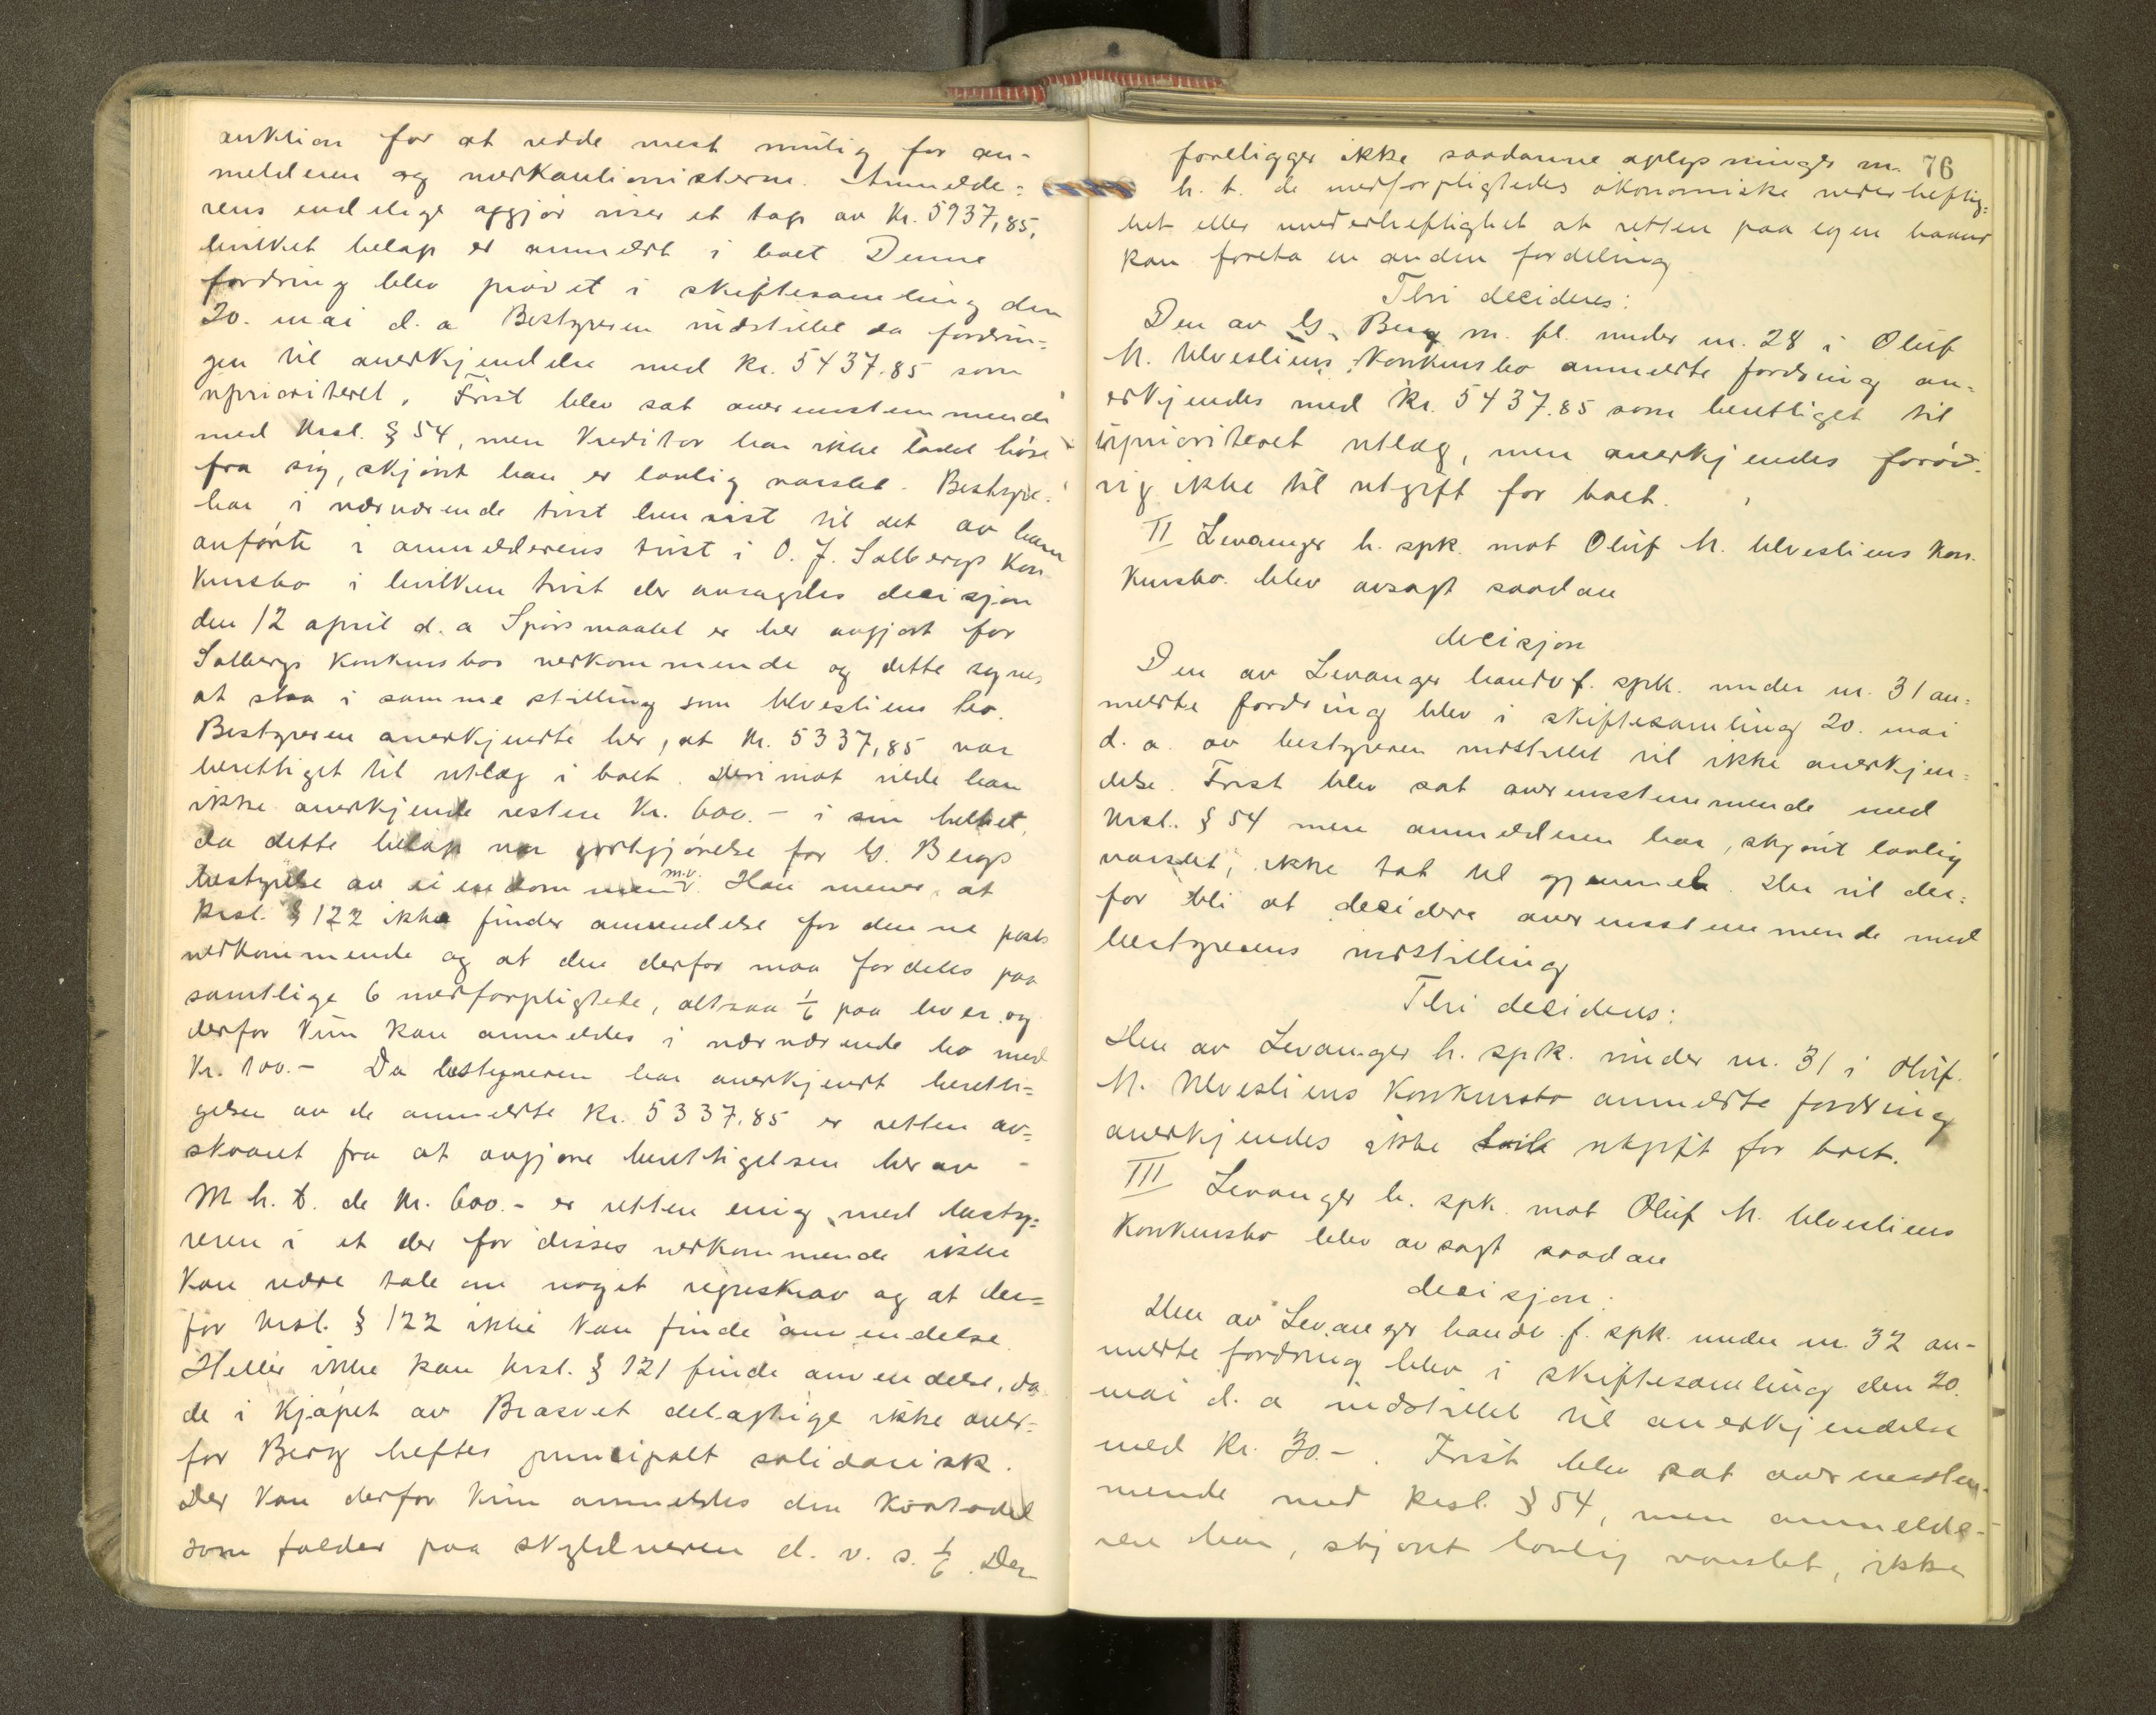 auktion for at redde mest mulig for an-
melderen og medkautionisterne. Anmelde=
rens endelige opgjør viser et tap av kr. 5937,85,
hvilket beløp er anmeldt i boet. Denne
fordring blev prøvet i skiftesamling den
20. mai d. a Bestyreren indstillet da fordrin=
gen til anerkjendelse med kr. 5437.85 som
uprioritert. Frist blev sat overensstemmende
med krsl. § 54, men kreditor har ikke ladet høre
fra sig, skjønt han er lovlig varslet. Bestyr.
har i nærværende tvist henvist til det av ham
anførte i anmelderens tvist i O. J. Salbergs kon
kursbo i hvilken tvist der avsagdes decisjon
den 12 april d. a Spørsmaalet er her avgjort for
Salbergs konkursbos vedkommende og dette synes
at staa i samme stilling som Ulvesliens bo.
Bestyreren anerkjendte her, at kr. 5337,85 var
berettiget til utlæg i boet. Derimot vilde han
ikke anerkjende resten kr. 600.- i sin helhet,
da dette beløp var godtgjørelse for G. Bergs
bestyrelse av eiendommen m.v. Han mener at
krsl. § 122 ikke finder anvendelse for denne posts
vedkommende og at den derfor maa fordeles paa
samtlige 6 medforpligtede, altsaa 1/6 paa hver og
derfor kun kan anmeldes i nærværende bo med
kr. 100.- Da bestyreren har anerkjendt beretti=
gelsen av de anmeldte kr. 5337.85 er retten av=
skaaret fra at avgjøre berettigelsen herav -
M h. t. de kr. 600.- er retten enig med besty=
reren i at der for disses vedkommende ikke
kan være tale om noget regreskrav og at der=
for krsl. § 122 ikke kan finde anvendelse.
Heller ikke kan krsl. § 121 finde anvendelse, da
de i kjøpet av Brasvet delagtige ikke over=
for Berg hefter principalt solidarisk.
Der kan derfor kun anmeldes den kvotadel
som falder paa skyldneren d. v. s. 1/6. Der
76
foreligger ikke saadanne oplysninger m.
h. t. de medforpligtedes økonomiske vederheftig=
het eller uvederheftighet at retten paa egen haand
kan foreta en anden fordeling
Thi decideres:
Den av G. Berg m. fl. under nr. 28 i Oluf
M. Ulvesliens konkursbo anmeldte fordring an=
erkjendes med kr. 5437.85 som berettiget til
uprioriteret utlæg, men anerkjendes forøv=
rig ikke til utgift for boet.
II Levanger h. spk. mot Oluf M. Ulvesliens kon.
kursbo. blev avsagt saadan
decisjon
Den av Levanger handv f. spk. under nr. 31 an=
meldte fordring blev i skiftesamling 20. mai
d. a. av bestyreren indstillet til ikke anerkjen=
delse. Frist blev sat overensstemmende med
krsl. § 54 men anmelderen har, skjønt lovlig
varslet, ikke tat til gjenmele. Der vil der=
for bli at decidere overensstemmende med
bestyrerens indstilling
Thi decideres:
Den av Levanger h. spk. under nr. 31 i Oluf.
M. Ulvesliens konkursbo anmeldte fordring
anerkjendes ikke utgift for boet.
III Levanger h. spk. mot Oluf M. Ulvesliens
konkursbo blev avsagt saadan
decisjon:
Den av Levanger handv. f. spk. under nr. 32 an-
meldte fordring blev i skiftesamling den 20.
mai d. a indstillet til anerkjendelse
med kr. 30.-. Frist blev sat overensstem-
mende med krsl. § 54, men anmelde-
ren har, skjønt lovlig varslet, ikke